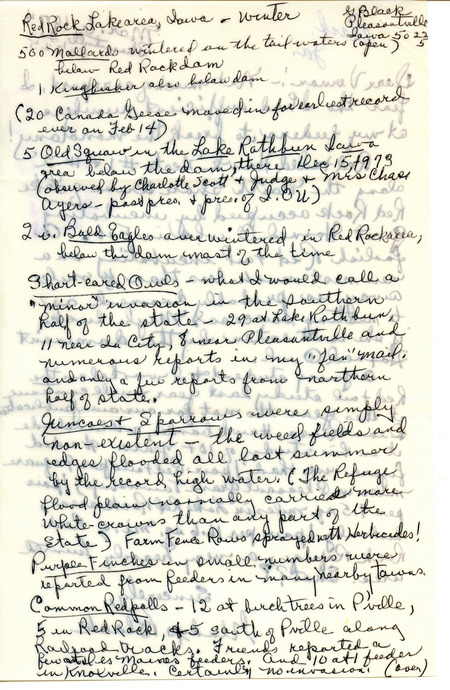 Red Rock Lake area, Iowa - Winter
G Black
Pleasantville
Iowa 50225
500 Mallards wintered on the tail waters (open)
below Red Rock dam
1 Kingfisher also below dam
(20 Canada Geese moved in for earliest record
ever on Feb 14)
5 Old Squaw in the Lake Rathbun Iowa
area below the dam, there Dec 15, 1973
(observed by Charlotte Scott & Judge & Mrs Chas
Ayers - past pres. & pres. of I.O.U)
2 Bald Eagles overwintered in Red Rock area,
below the dam most of the time
Short-eared Owls - what I would call a
"minor" invasion in the southern
half of the state - 29 at Lake Rathbun,
11 near Ia City, 8 near Pleasantville and
numerous reports in my "fan" mail.
and only a few reports from northern
half of state.
Juncoes & Sparrows were simply
non-existent - the weed fields and
edges flooded all last summer
by the record high water. (The Refuge
flood plain normally carried more
White-crowns than any part of the
State) Farm Fence Rows sprayed with Herbicides!
Purple Finches in small numbers were
reported from feeders in many nearby towns.
Common Redpolls - 12 at birch trees in P'ville,
5 in Red Rock, 5 south of P'ville along
Railroad tracks. Friends reported a
few at Des Moines feeders. And 10 at 1 feeder
in Knoxville. Certainly no invasion. (over)